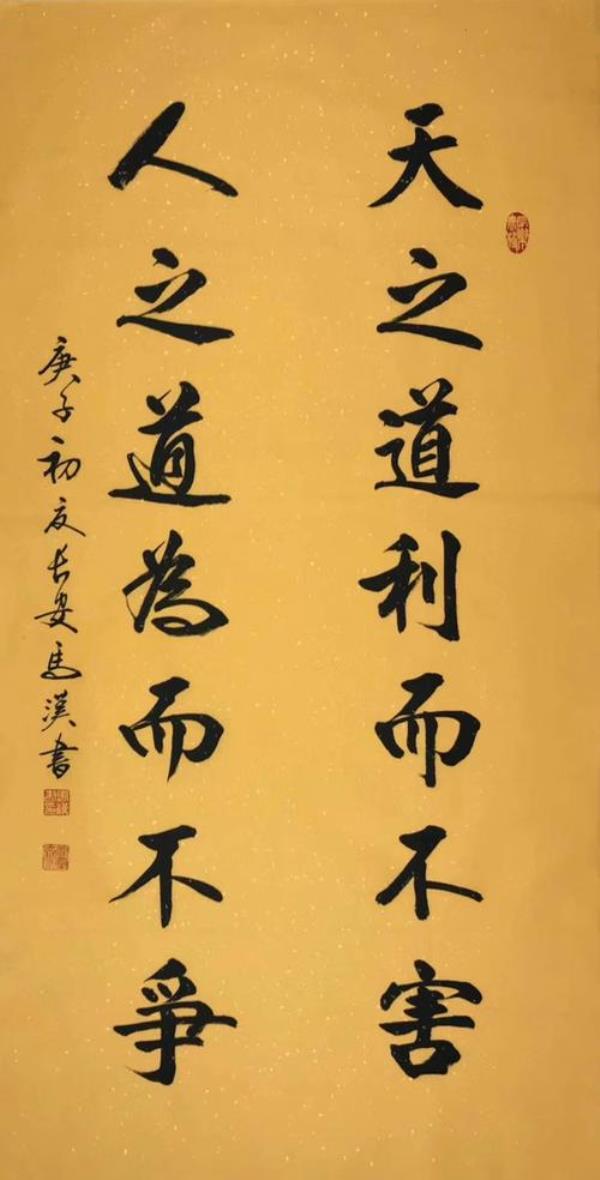 天之道利而不害
人之道為而不爭
庚子初夏长安馬漢書